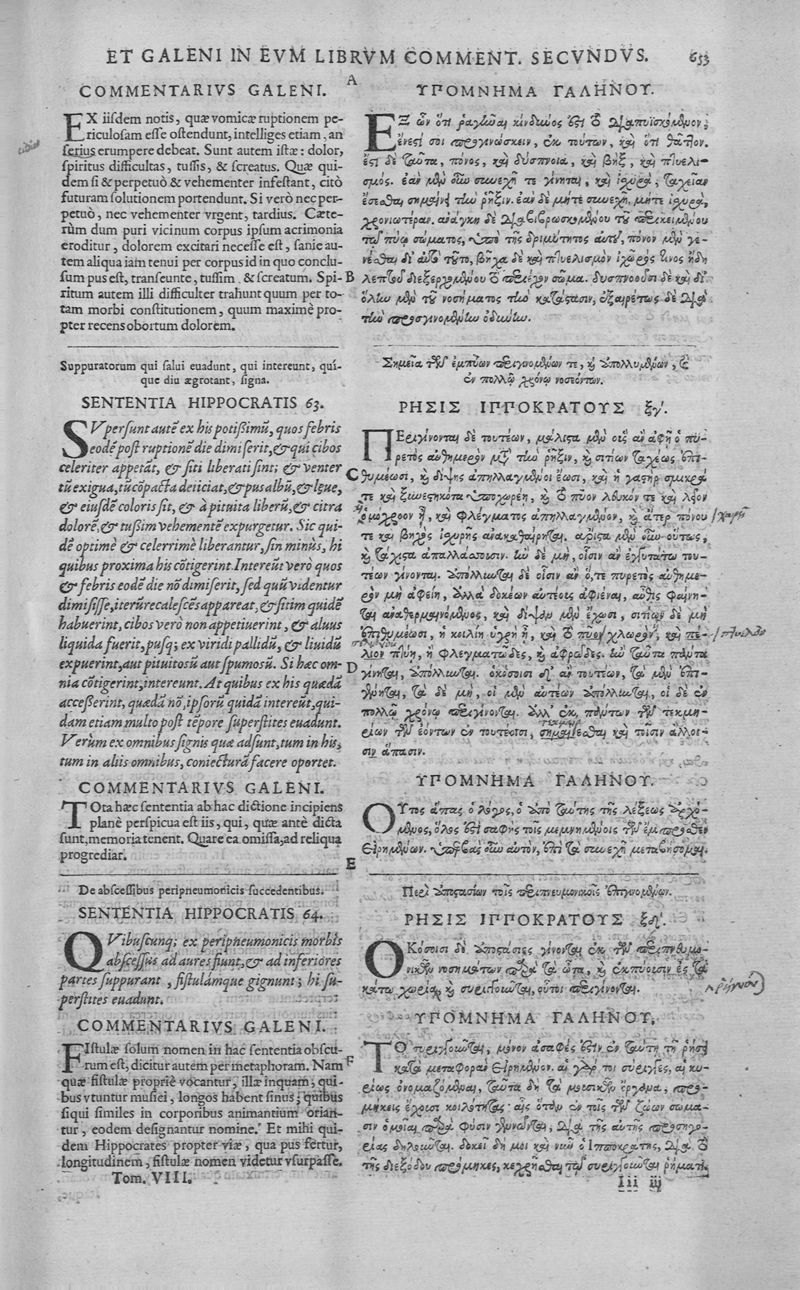 ET GALENI IN EVM LIBRVM COMMENT. SECVNDVS. 653
A
COMMENTARIVS GALENI.
EX iisdem notis, quæ vomicæ ruptionem pe-
riculosam esse ostendunt, intelliges etiam, an
serius erumpere debeat. Sunt autem istæ: dolor,
spiritus difficultas, tussis, & screatus. Quæ qui-
dem si & perpetuò & vehementer infestant, citò
futuram solutionem portendunt. Si verò nec per-
petuò, nec vehementer vrgent, tardius. Cæte-
rùm dum puri vicinum corpus ipsum acrimonia
eroditur, dolorem excitari necesse est, sanie au-
tem aliqua iam tenui per corpus id in quo conclu-
sum pus est, transeunte, tussim & screatum. Spi-
ritum autem illi difficulter trahunt quum per to-
tam morbi constitutionem, quum maximè pro-
pter recens obortum dolorem.
Suppuratorum qui salui euadunt, qui intereunt, qui-
que diu ægrotant, signa.
SENTENTIA HIPPOCRATIS 63.
SVpersunt autē ex his potißimū, quos febris
eodē post ruptionē die dimiserit, & qui cibos
celeriter appetāt, & siti liberati sint; & venter
tū exigua, tū cōpacta deiiciat, & pus albū, & leue,
& eiusdē coloris sit, & à pituita liberū, & citra
dolorē, & tußim vehementē expurgetur. Sic qui-
dē optimè & celerrimè liberantur, sin minus, hi
quibus proxima his cōtigerint. Intereūt verò quos
& febris eodē die nō dimiserit, sed quū videntur
dimisisse, iterū recalescēs appareat, & sitim quidē
habuerint, cibos verò non appetiuerint, & aluus
liquida fuerit, pusq; ex viridi pallidū, & liuidū
expuerint, aut pituitosū aut spumosū. Si hæc om-
nia cōtigerint, intereunt. At quibus ex his quædā
accesserint, quædā nō, ipsorū quidā intereūt, qui-
dam etiam multo post tēpore superstites euadunt.
Verùm ex omnibus signis quæ adsunt, tum in his,
tum in aliis omnibus, coniecturā facere oportet.
COMMENTARIVS GALENI.
TOta hæc sententia ab hac dictione incipiens
planè perspicua est iis, qui, quæ antè dicta
sunt, memoria tenent. Quare ea omissa, ad reliqua
progrediar.
De abscessibus peripneumonicis succedentibus.
SENTENTIA HIPPOCRATIS 64.
QVibuscunq; ex peripneumonicis morbis
abscessus ad aures fiunt, & ad inferiores
partes suppurant, fistulámque gignunt; hi su-
perstites euadunt.
COMMENTARIVS GALENI.
FIstulæ solum nomen in hac sententia obscu-
rum est; dicitur autem per metaphoram. Nam
quæ fistulæ propriè vocantur, illæ inquam, qui-
bus vtuntur musici, longos habent sinus; quibus
siqui similes in corporibus animantium orian-
tur, eodem designantur nomine. Et mihi qui-
dem Hippocrates propter viæ, qua pus fertur,
longitudinem, fistulæ nomen videtur vsurpasse.
Tom. VIII.
B
C
D
E
F
ΥΠΟΜΝΗΜΑ ΓΑΛΗΝΟΥ.
ἘΞ ὧν ὅτι ῥαγῆναι κινδυνῶδές ἐστι τὸ διαπυϊσκόμενον,
ἔνεστί σοι προγινώσκειν, ἐκ τούτων, καὶ ὅτι θᾶττον.
ἔστι δὲ ταῦτα, πόνος, καὶ δύσπνοια, καὶ βὴξ, καὶ πτυελι-
σμός. ἐὰν μὲν οὖν συνεχῆ τε γίνηται, καὶ ἰσχυρὰ, ταχεῖαν
ἔσεσθαι σημαίνει τὴν ῥῆξιν. ἐὰν δὲ μήτε συνεχῆ, μήτε ἰσχυρὰ,
χρονιωτέραν. ἀνάγκη δὲ διαβιβρωσκομένου τοῦ περικειμένου
τῷ πύῳ σώματος, ὑπὸ τῆς δριμύτητος αὐτοῦ, πόνον μὲν γε-
νέσθαι δι' αὐτὸ τοῦτο, βῆχα δὲ καὶ πτυελισμὸν ἰχῶρός τινος ἤδη
λεπτοῦ διεξερχομένου τὸ περιέχον σῶμα. δυσπνοοῦσι δὲ καὶ δι'
ὅλην μὲν τοῦ νοσήματος τὴν κατάστασιν, ἐξαιρέτως δὲ διὰ
τὴν προσγινομένην ὀδύνην.
Σημεῖα τῶν ἐμπύων περιγινομένων τε, καὶ ἀπολλυμένων, καὶ
ἐν πολλῷ χρόνῳ νοσεόντων.
ΡΗΣΙΣ ΙΠΠΟΚΡΑΤΟΥΣ ξγ'.
ΠΕριγίνονται δὲ τουτέων, μάλιστα μὲν οὓς ἂν ἀφῇ ὁ πυ-
ρετὸς αὐθημερὸν μετὰ τὴν ῥῆξιν, καὶ σιτίων ταχέως ἐπι-
θυμέωσι, καὶ δίψης ἀπηλλαγμένοι ἔωσι, καὶ ἡ γαστὴρ σμικρά
τε καὶ ξυνεστηκότα ὑποχωρέῃ, καὶ τὸ πῦον λευκόν τε καὶ λεῖον
ὁμόχροον ᾖ, καὶ φλέγματος ἀπηλλαγμένον, καὶ ἄτερ πόνου
τε καὶ βηχὸς ἰσχυρῆς ἀνακαθαίρηται. ἄριστα μὲν οὖν οὕτως,
καὶ τάχιστα ἀπαλλάσσουσιν. ἢν δὲ μὴ, οἷσιν ἂν ἐγγυτάτω του-
τέων γίνονται. ἀπόλλυνται δὲ οἷσιν ἂν ὅ,τε πυρετὸς αὐθημε-
ρὸν μὴ ἀφείη, ἀλλὰ δοκέων αὐτέοις ἀφιέναι, αὖθις φαίνη-
ται ἀναθερμαινόμενος, καὶ δίψαν μὲν ἔχωσι, σιτίων δὲ μὴ
ἐπιθυμέωσι, ἡ κοιλίη ὑγρὴ ᾖ, καὶ τὸ πῦον χλωρὸν, καὶ πέ-
λιον πτύῃ, ἢ φλεγματῶδες, καὶ ἀφρῶδες. ἢν ταῦτα πάντα
γίνηται, ἀπόλλυνται. ὁκόσοισι δ' ἂν τουτέων, τὰ μὲν ἐπι-
γένηται, τὰ δὲ μὴ, οἱ μὲν αὐτέων ἀπόλλυνται, οἱ δὲ ἐν
πολλῷ χρόνῳ περιγίνονται. ἀλλ' ἐκ πάντων τῶν τεκμη-
ρίων τῶν ἐόντων ἐν τουτέοισι, σημαίνεσθαι καὶ τοῖσιν ἄλλοι-
σιν ἅπασιν.
ΥΠΟΜΝΗΜΑ ΓΑΛΗΝΟΥ.
ΟΥτος ἅπας ὁ λόγος, ὁ ἀπὸ ταύτης τῆς λέξεως ἀρχό-
μενος, ὅλος ἐστὶ σαφὴς τοῖς μεμνημένοις τῶν ἔμπροσθεν
εἰρημένων. ὑπερβὰς οὖν αὐτὸν, ἐπὶ τὰ συνεχῆ μεταβήσομαι.
Περὶ ἀποστασίων τοῖς περιπνευμονικοῖς ἐπιγινομένων.
ΡΗΣΙΣ ΙΠΠΟΚΡΑΤΟΥΣ ξδ'.
ΟΚόσοισι δὲ ἀποστάσιες γίνονται ἐκ τῶν περιπνευμο-
νικῶν νοσημάτων παρὰ τὰ ὦτα, καὶ ἐκπύουσιν ἐς τὰ
κάτω χωρία, καὶ συριγγοῦνται, οὗτοι περιγίνονται.
ΥΠΟΜΝΗΜΑ ΓΑΛΗΝΟΥ.
ΤΟ συριγγοῦνται, μόνον ἀσαφές ἐστιν ἐν ταύτῃ τῇ ῥήσει
κατὰ μεταφορὰν εἰρημένον. αἱ γάρ τοι σύριγγες, αἱ κυ-
ρίως ὀνομαζόμεναι, ταῦτα δὴ τὰ μουσικῶν ὄργανα, προ-
μήκεις ἔχουσι κοιλότητας· αἷς ὅταν ἐν τοῖς τῶν ζώων σώμα-
σιν ὅμοιαι παρὰ φύσιν γίνωνται, διὰ τῆς αὐτῆς προσηγο-
ρίας δηλοῦνται. δοκεῖ δή μοι καὶ νῦν ὁ Ἱπποκράτης, διὰ τὸ
τῆς διεξόδου πρόμηκες, κεχρῆσθαι τῷ συριγγοῦνται ῥήματι.
Iii iij